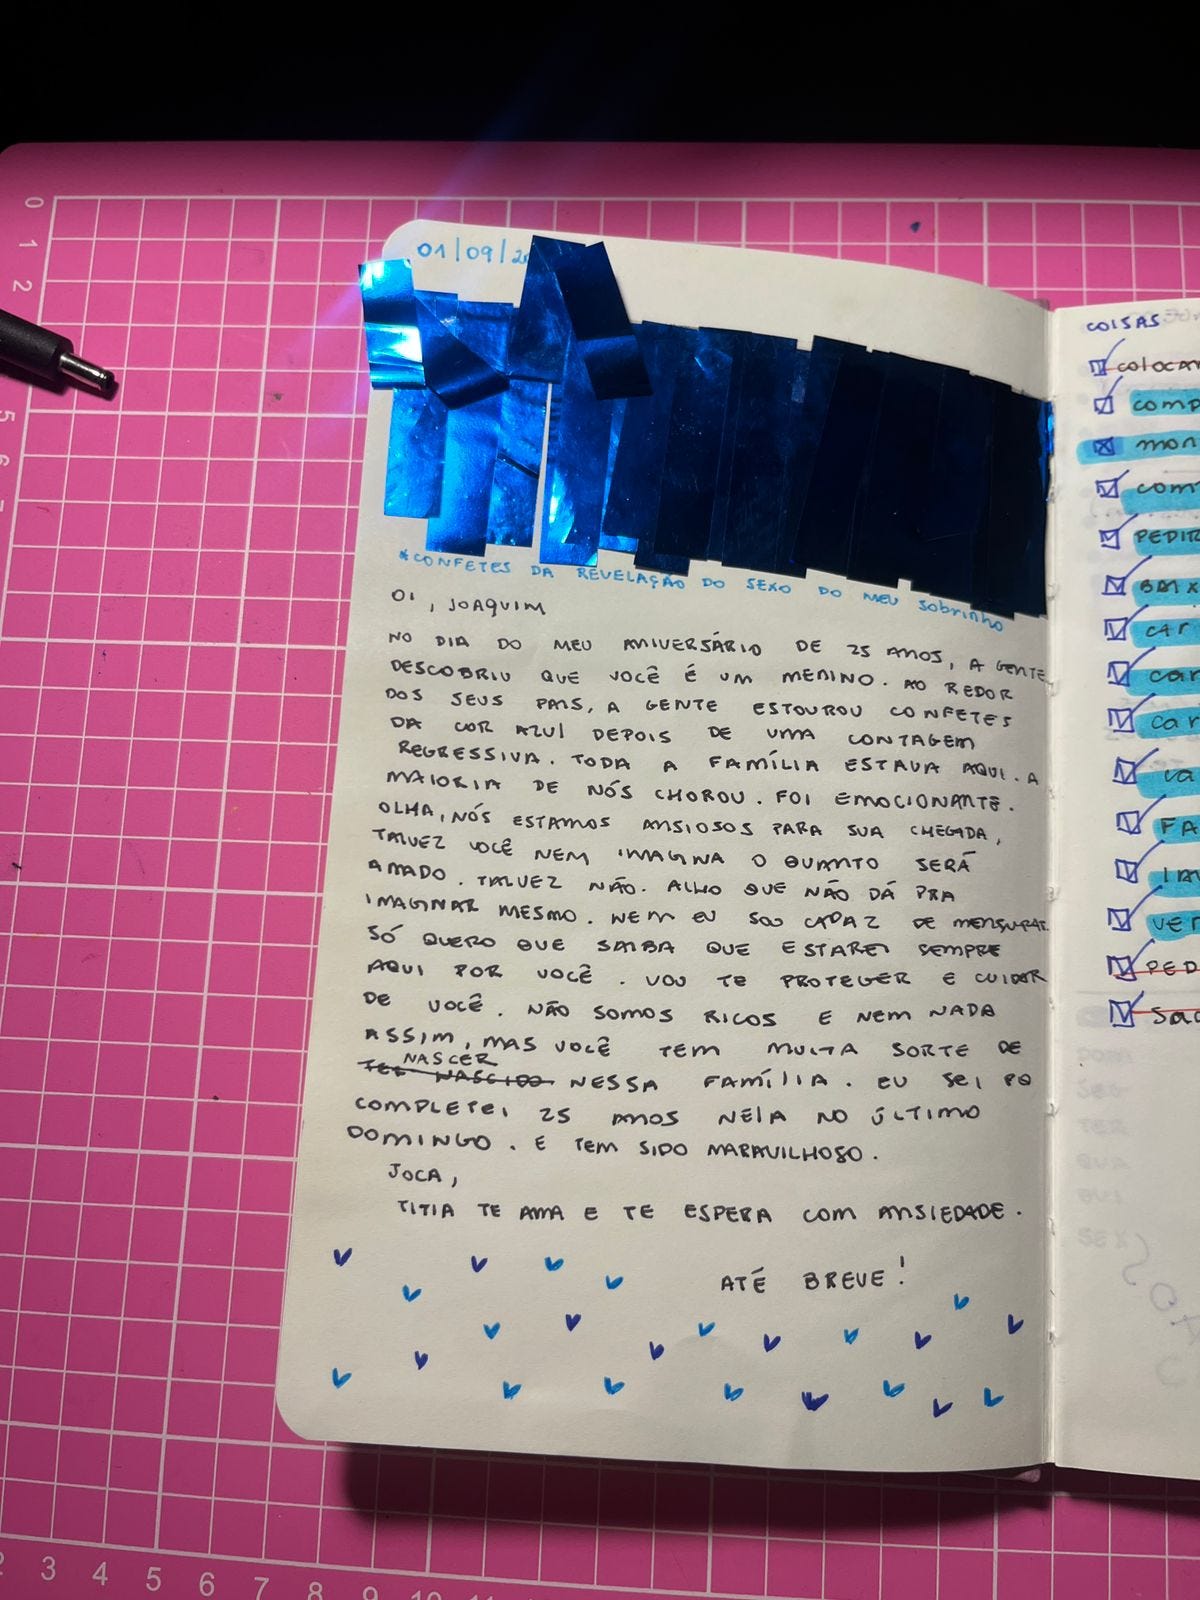 01/09/2
*CONFETES DA REVELAÇÃO DO SEXO DO MEU SOBRINHO
OI, JOAQUIM
NO DIA DO MEU ANIVERSÁRIO DE 25 ANOS, A GENTE
DESCOBRIU QUE VOCÊ É UM MENINO. AO REDOR
DOS SEUS PAIS, A GENTE ESTOUROU CONFETES
DA COR AZUL DEPOIS DE UMA CONTAGEM
REGRESSIVA. TODA A FAMÍLIA ESTAVA AQUI. A
MAIORIA DE NÓS CHOROU. FOI EMOCIONANTE.
OLHA, NÓS ESTAMOS ANSIOSOS PARA SUA CHEGADA,
TALVEZ VOCÊ NEM IMAGINA O QUANTO SERÁ
AMADO. TALVEZ NÃO. ALHO QUE NÃO DÁ PRA
IMAGINAR MESMO. NEM EU SOU CAPAZ DE MENSURAR.
SÓ QUERO QUE SAIBA QUE ESTAREI SEMPRE
AQUI POR VOCÊ. VOU TE PROTEGER E CUIDAR
DE VOCÊ. NÃO SOMOS RICOS E NEM NADA
ASSIM, MAS VOCÊ TEM MUITA SORTE DE
NASCER
TER NASCIDO NESSA FAMÍLIA. EU SEI PQ
COMPLETEI 25 ANOS NELA NO ÚLTIMO
DOMINGO. E TEM SIDO MARAVILHOSO.
JOCA,
TITIA TE AMA E TE ESPERA COM ANSIEDADE.
ATÉ BREVE!
COISAS
COLOCAR
COMP
MON
COM
PEDIR
BAIX
CAR
CAR
CAR
VA
FA
VER
PED
SAC
0
1
2
5
6
7
2 3 4 5 6 7 8 9 10 11